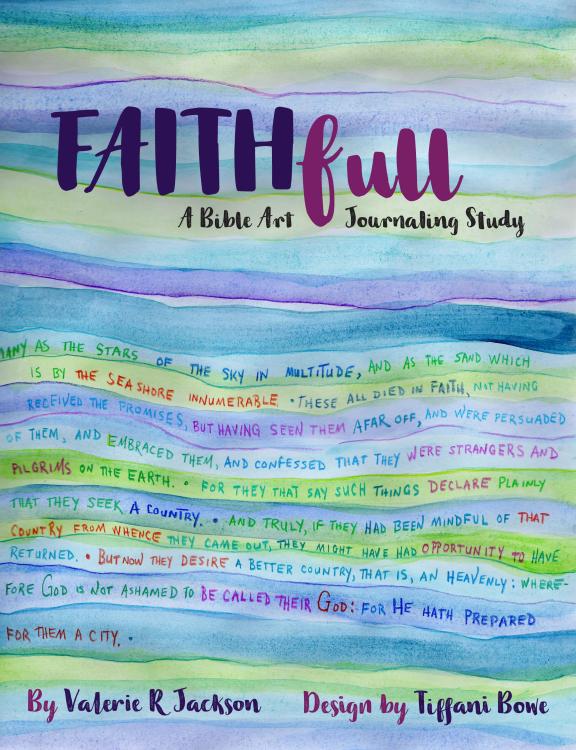 FAITHfull
A Bible Art Journaling Study
MANY AS THE STARS OF THE SKY IN MULTITUDE, AND AS THE SAND WHICH
IS BY THE SEA SHORE INNUMERABLE. • THESE ALL DIED IN FAITH, NOT HAVING
RECEIVED THE PROMISES, BUT HAVING SEEN THEM AFAR OFF, AND WERE PERSUADED
OF THEM, AND EMBRACED THEM, AND CONFESSED THAT THEY WERE STRANGERS AND
PILGRIMS ON THE EARTH. • FOR THEY THAT SAY SUCH THINGS DECLARE PLAINLY
THAT THEY SEEK A COUNTRY. • AND TRULY, IF THEY HAD BEEN MINDFUL OF THAT
COUNTRY FROM WHENCE THEY CAME OUT, THEY MIGHT HAVE HAD OPPORTUNITY TO HAVE
RETURNED. • BUT NOW THEY DESIRE A BETTER COUNTRY, THAT IS, AN HEAVENLY: WHERE-
FORE GOD IS NOT ASHAMED TO BE CALLED THEIR GOD: FOR HE HATH PREPARED
FOR THEM A CITY. •
By Valerie R Jackson Design by Tiffani Bowe